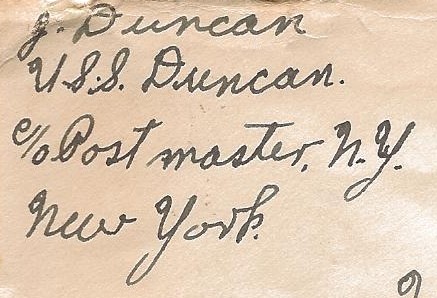 J. Duncan
U.S.S. Duncan.
c/o Post master, N.Y.
New York.